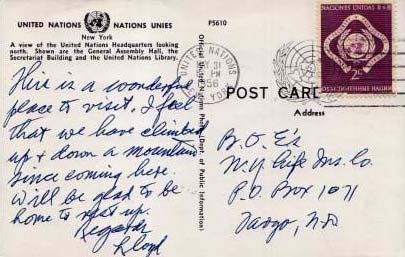 UNITED NATIONS NATIONS UNIES
New York
A view of the United Nations Headquarters looking
north. Shown are the General Assembly Hall, the
Secretariat Building and the United Nations Library.
P5610
This is a wonderful
place to visit. I feel
that we have climbed
up & down a mountain
since coming here.
Will be glad to be
home to rest up.
Regards
Lloyd
Official United Nations Photo (Dept. of Public Information)
UNITED NATIONS
31
PM
NEW YORK
NACIONES UNIDAS
2¢
POST CARD
Address
B.O.E's
N.Y. Life Ins. Co.
P.O. Box 1071
Fargo, N.D.